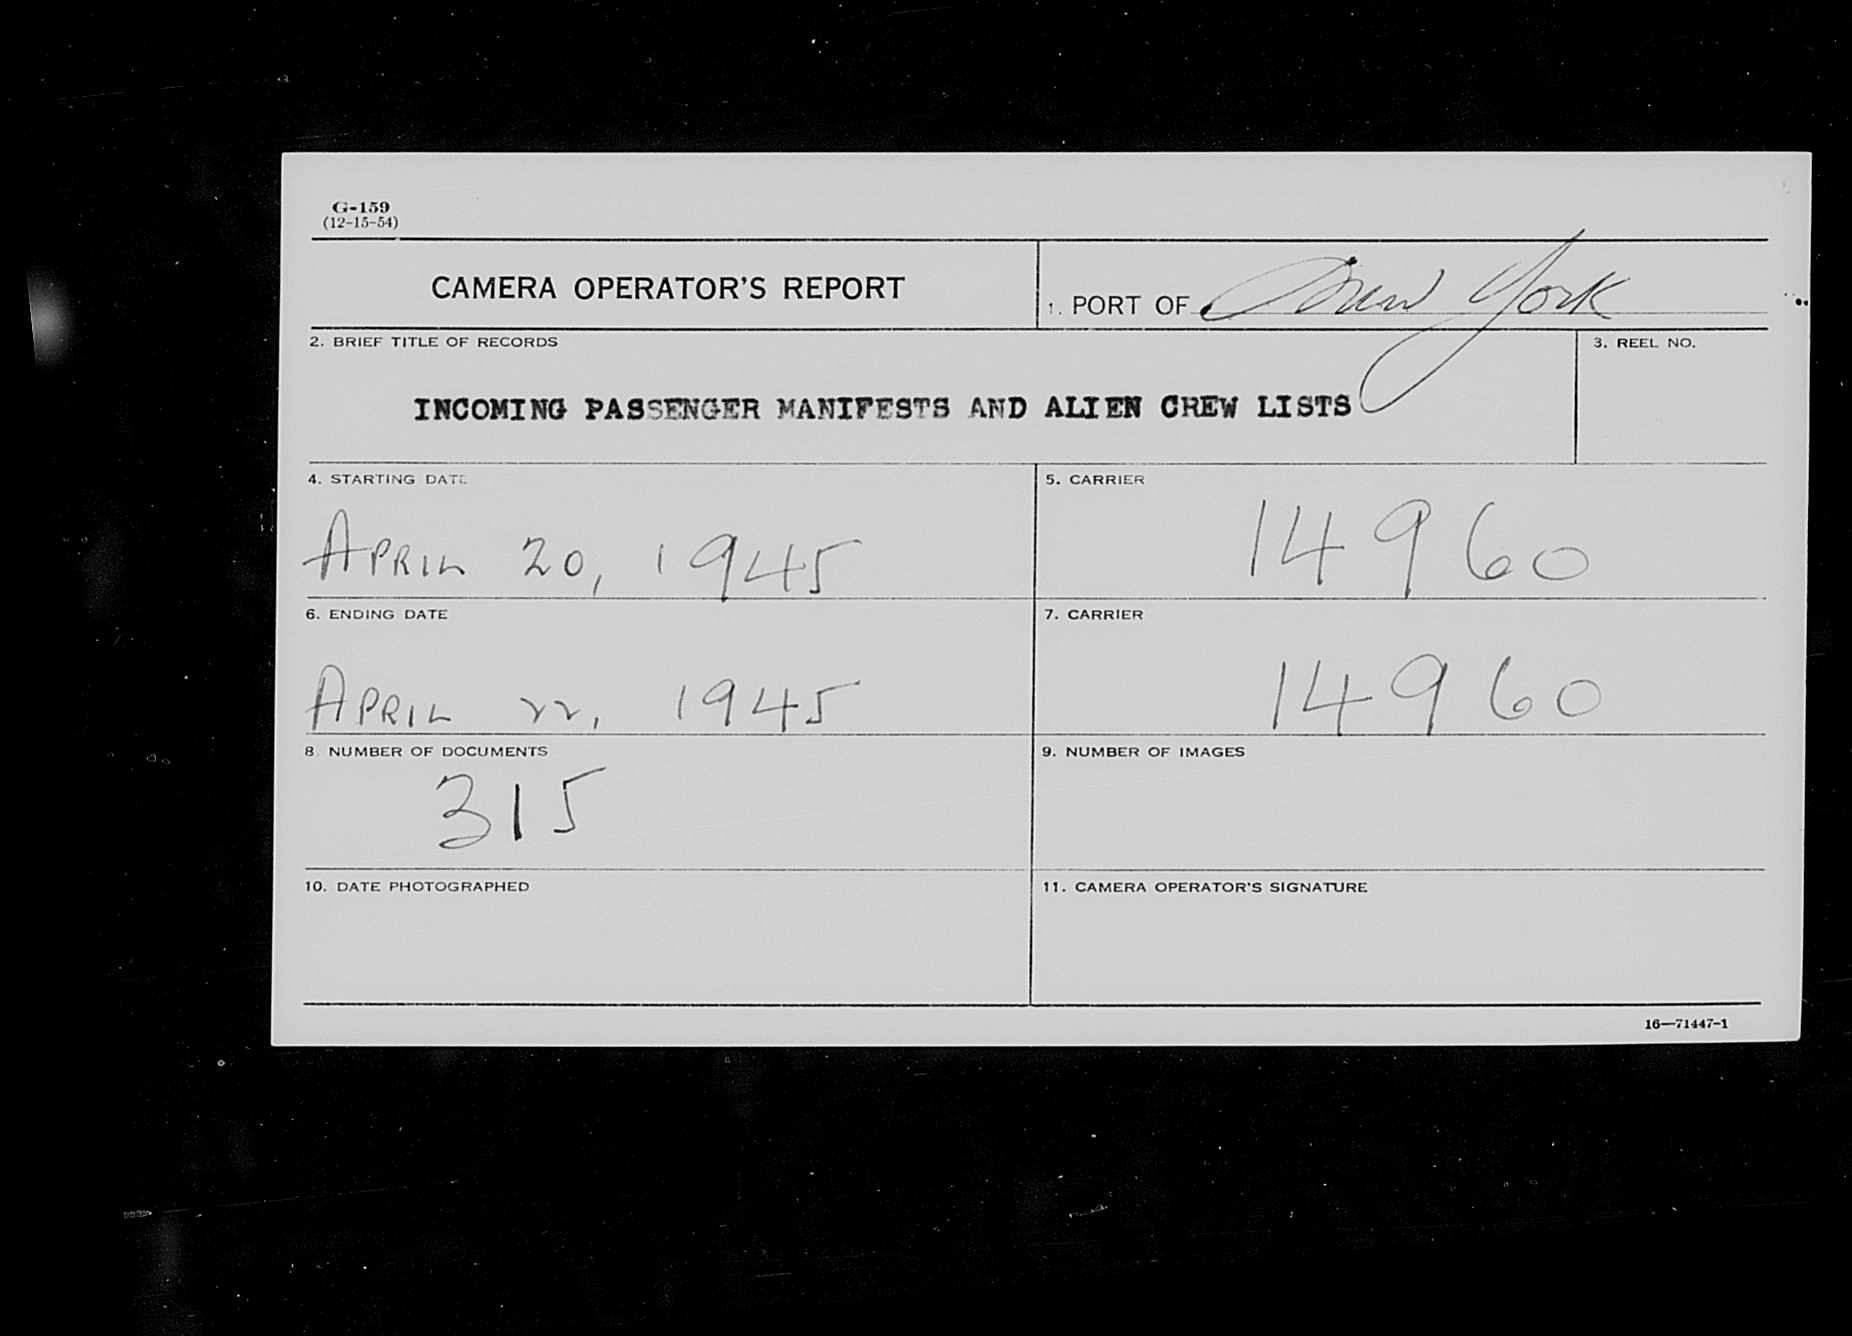 G-159
(12-15-54)
CAMERA OPERATOR'S REPORT
1. PORT OF New York
2. BRIEF TITLE OF RECORDS
3. REEL NO.
INCOMING PASSENGER MANIFESTS AND ALIEN CREW LISTS
4. STARTING DATE
5. CARRIER
APRIL 20, 1945
14960
6. ENDING DATE
7. CARRIER
APRIL 22, 1945
14960
8. NUMBER OF DOCUMENTS
9. NUMBER OF IMAGES
315
10. DATE PHOTOGRAPHED
11. CAMERA OPERATOR'S SIGNATURE
16—71447-1